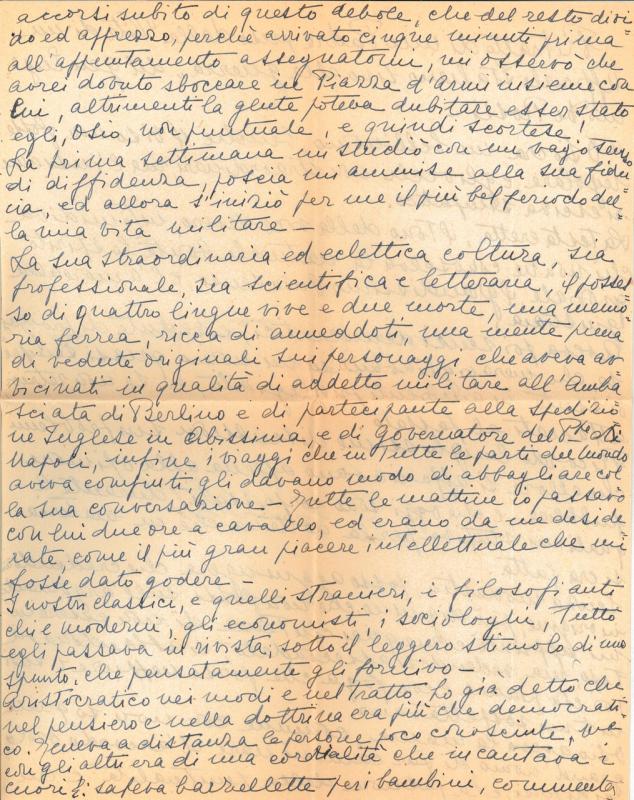 accorsi subito di questo debole, che del resto divi=
do ed apprezzo, perchè arrivato cinque minuti prima
all'appuntamento assegnatomi, mi osservò che
avrei dovuto sboccare in Piazza d'Armi insieme con
lui, altrimenti la gente poteva dubitare esser stato
egli, Osio, non puntuale, e quindi scortese!
La prima settimana mi studiò con un vago senso
di diffidenza, poscia mi ammise alla sua fidu=
cia, ed allora s'iniziò per me il più bel periodo del=
la mia vita militare —
La sua straordinaria ed eclettica coltura, sia
professionale, sia scientifica e letteraria, il posses=
so di quattro lingue vive e due morte, una memo=
ria ferrea, ricca di anneddoti, una mente piena
di vedute originali sui personaggi che aveva av=
vicinati in qualità di addetto militare all'Amba=
sciata di Berlino e di partecipante alla spedizio=
ne Inglese in Abissinia, e di governatore del P.pe di
Napoli, infine i viaggi che in tutte le parti del mondo
aveva compiuti, gli davano modo di abbagliare col
la sua conversazione — Tutte le mattine io passavo
con lui due ore a cavallo, ed erano da me deside
rate, come il più gran piacere intellettuale che mi
fosse dato godere —
I nostri classici, e quelli stranieri, i filosofi anti
chi e moderni, gli economisti, i sociologhi, tutto
egli passava in rivista, sotto il leggero stimolo di uno
spunto, che pensatamente gli fornivo —
Aristocratico nei modi e nel tratto, ho già detto che
nel pensiero e nella dottrina era più che democrati=
co. Teneva a distanza le persone poco conosciute, ma
con gli altri era di una cordialità che incantava i
cuori: sapeva barzellette per i bambini, commenta